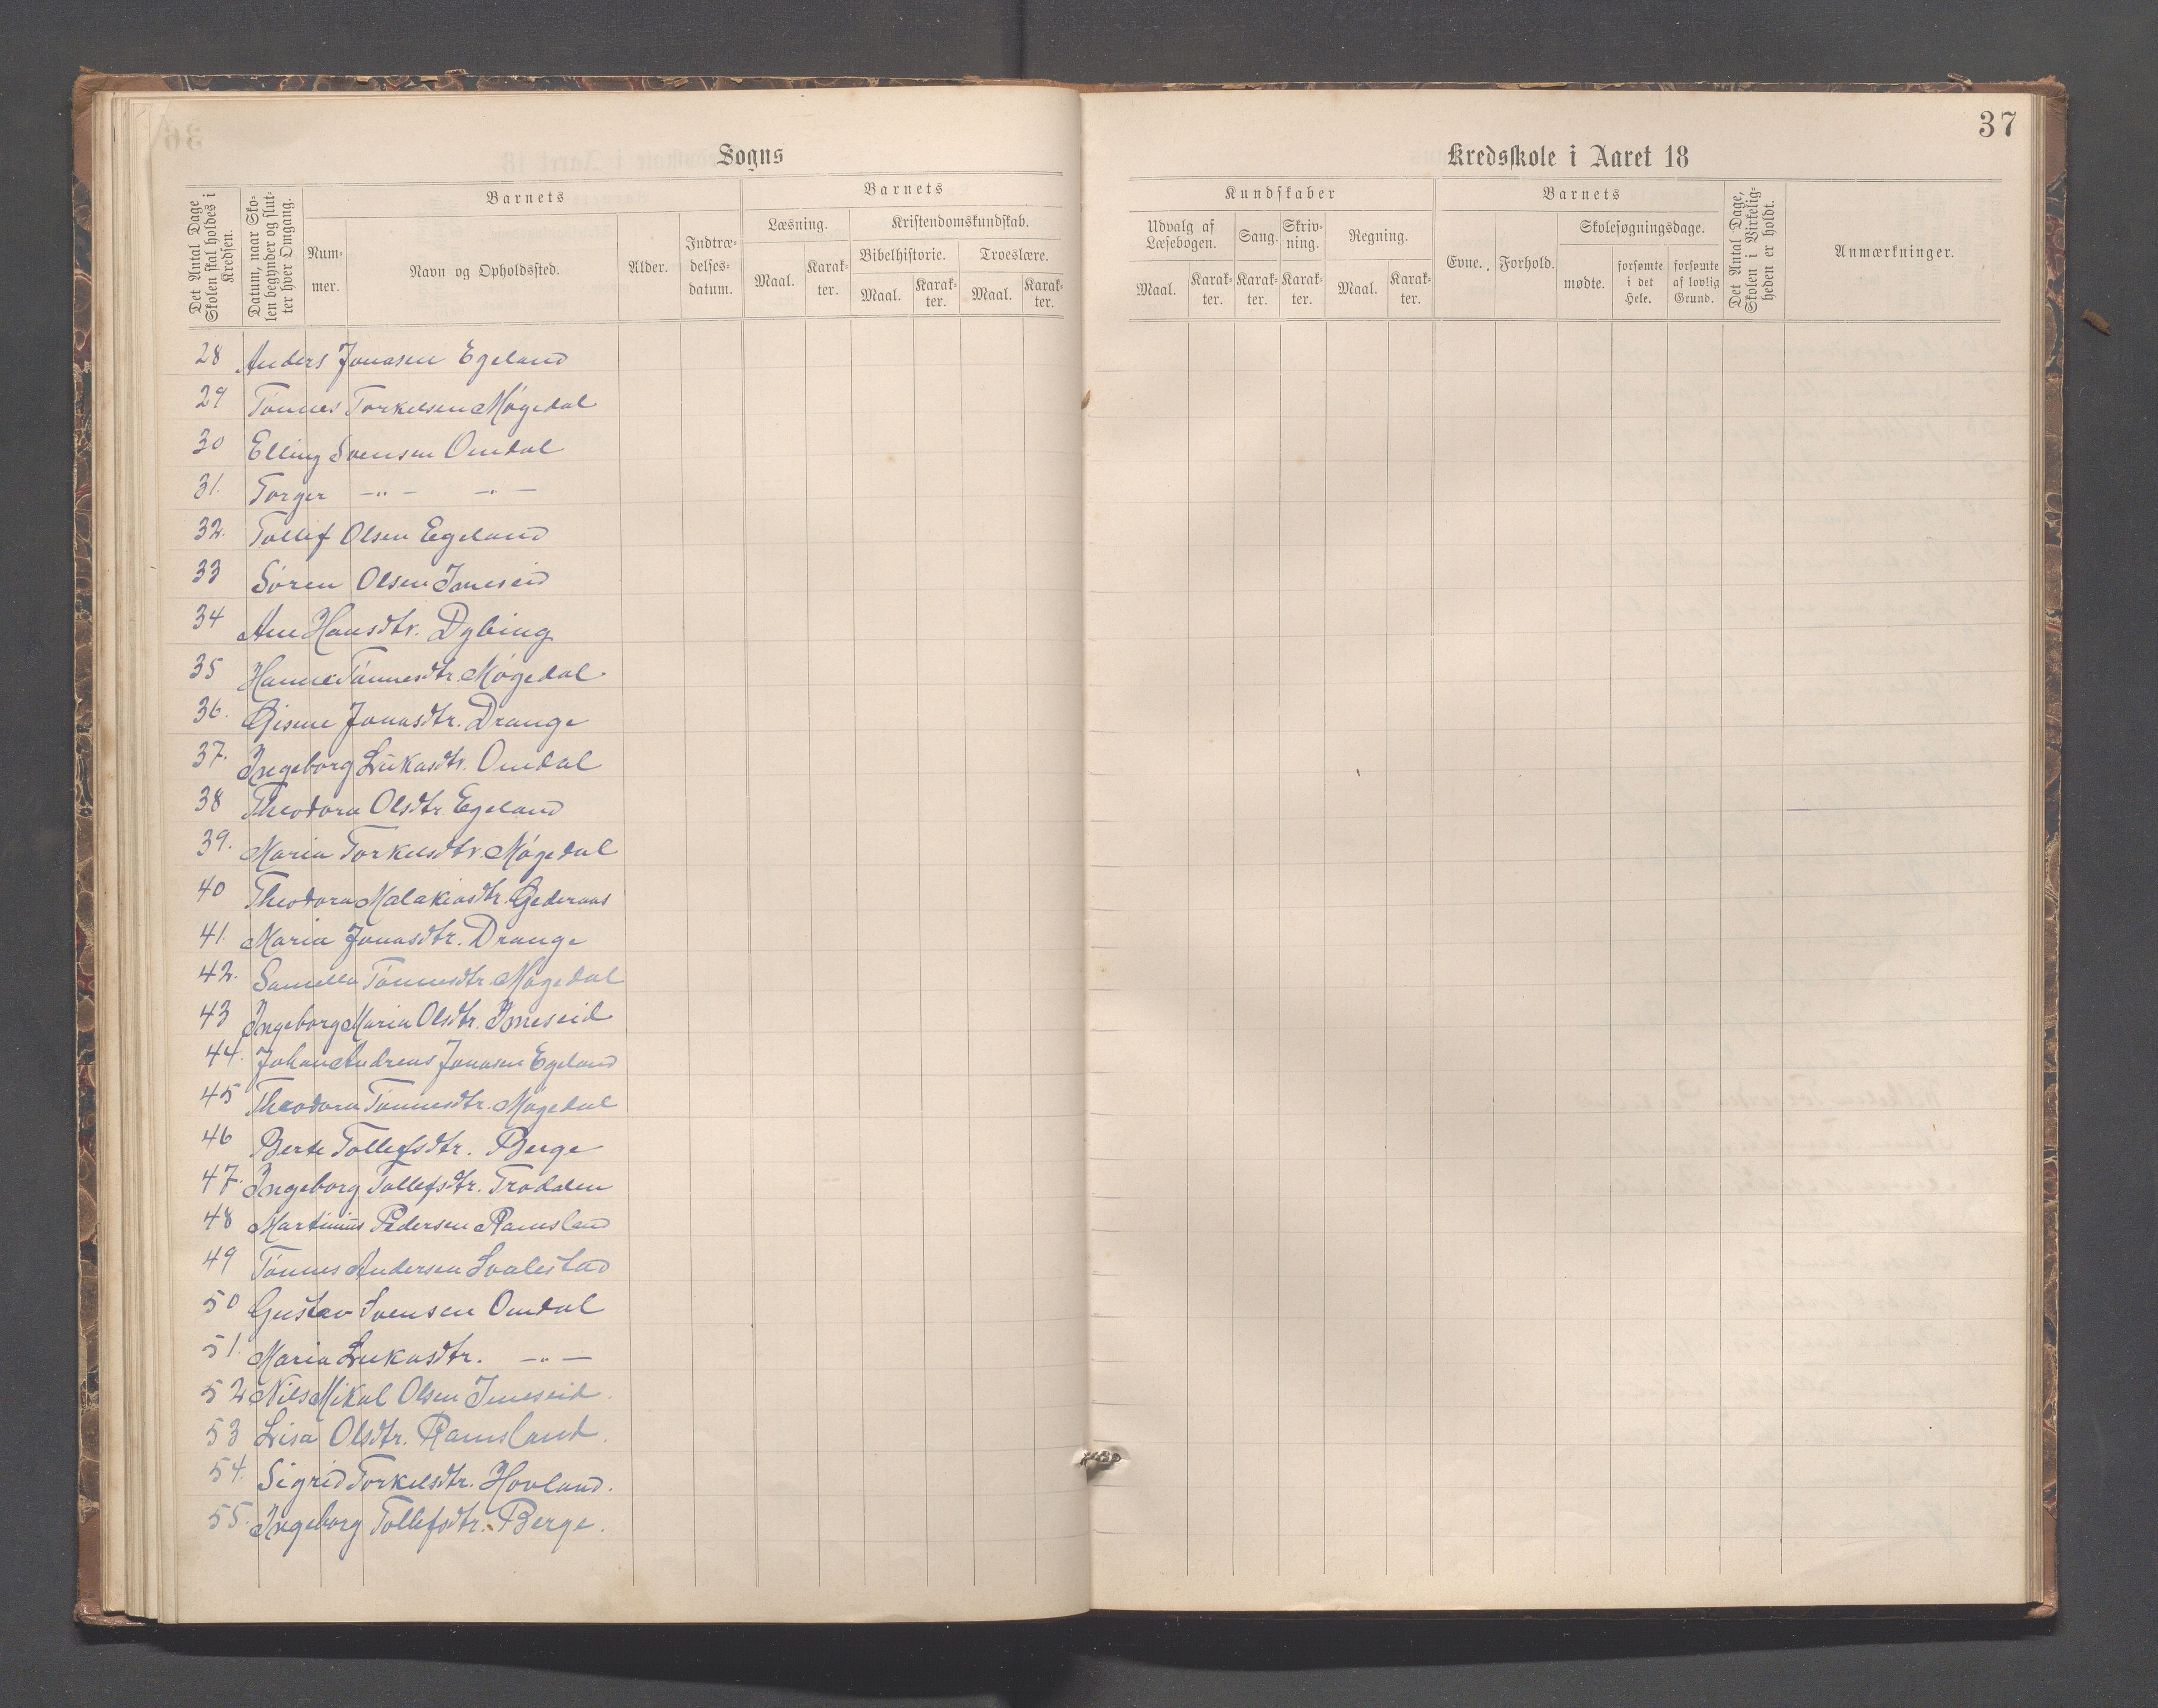 37
Sogns
Kredsskole i Aaret 18
Det Antal Dage Skolen skal holdes i Kredsen.
Datum, naar Skolen begynder og slutter hver Omgang.
Barnets
Nummer.
Navn og Opholdssted.
Alder.
Indtrædelsesdatum.
Barnets
Læsning.
Maal.
Karakter.
Kristendomskundskab.
Bibelhistorie.
Maal.
Karakter.
Troeslære.
Maal.
Karakter.
Kundskaber
Udvalg af Læsebogen.
Maal.
Karakter.
Sang.
Karakter.
Skrivning.
Karakter.
Regning.
Maal.
Karakter.
Barnets
Evne.
Forhold.
Skolesøgningsdage.
mødte.
forsømte i det Hele.
forsømte af lovlig Grund.
Det Antal Dage, Skolen i Virkeligheden er holdt.
Anmærkninger.
28 Anders Jonasen Egeland
29 Tönnes Torkelsen Mögedal
30 Elling Svensen Omdal
31. Torger -"- -"-
32. Tollef Olsen Egeland
33 Sören Olsen Imeseid
34 Ane Hansdtr. Dybing
35 Hanne Tönnesdtr. Mögedal
36. Gisene Jonasdtr. Drange
37. Ingeborg Lukasdtr. Omdal
38 Theodora Olsdtr. Egeland
39. Maria Torkelsdtr. Mögedal
40 Theodora Malakiasdtr. Gederaas
41. Maria Jonasdtr. Drange
42. Samella Tönnesdtr. Mögedal
43 Ingeborg Maria Olsdtr. Imeseid
44. Johan Andreas Jonasen Egeland
45 Theodora Tönnesdtr. Mögedal
46 Berte Tollefsdtr. Berge
47. Ingeborg Tollefsdtr. Trodalen
48 Martinius Pedersen Ramsland
49 Tönnes Andersen Svalestad
50 Gustav Svensen Omdal
51. Maria Lukasdtr. -"-
52 Nils Mikal Olsen Imeseid.
53 Lisa Olsdtr. Ramsland.
54. Sigrid Torkelsdtr. Hovland.
55. Ingeborg Tollefsdtr. Berge.